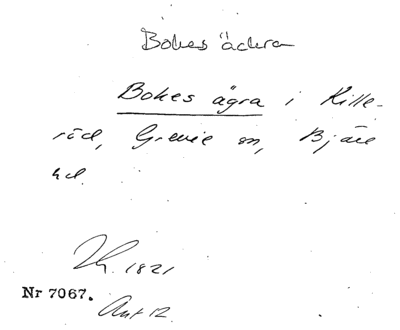 Bokes äckra
Bokes ägra i Kille-
röd, Grevie sn, Bjäre
hd.
1821
Nr 7067.
Ant 12